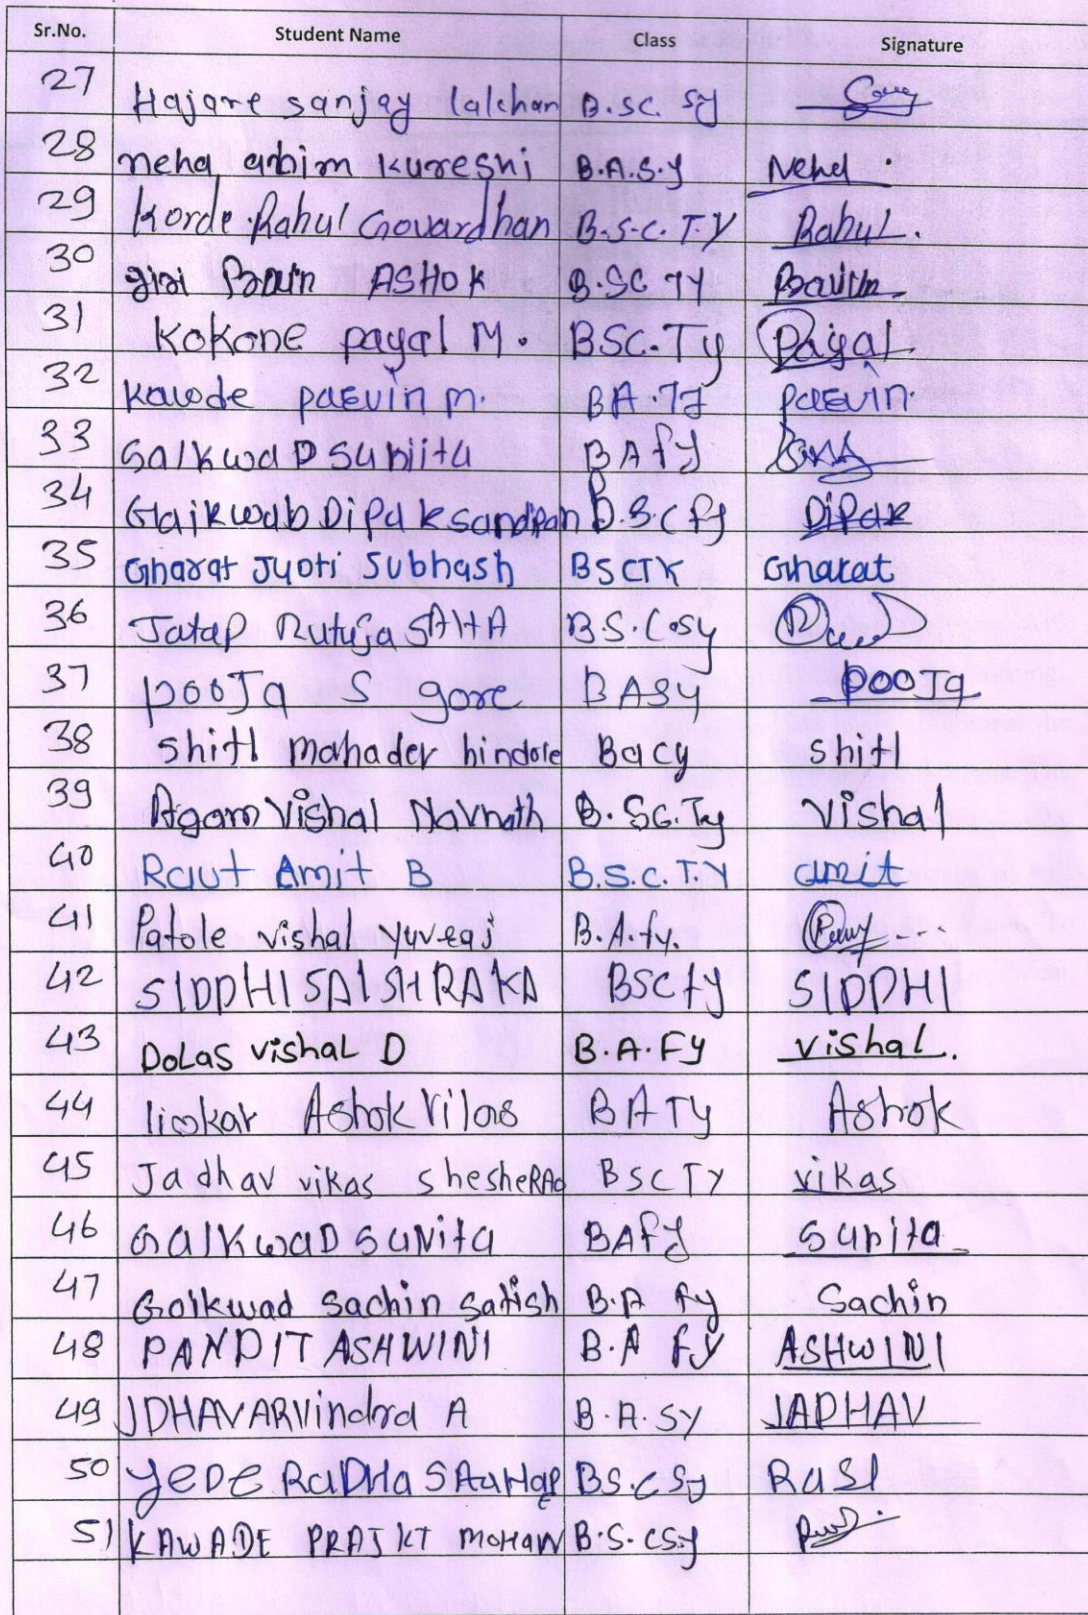 Sr.No. Student Name Class Signature
27 Hajare sanjay lalchan B.sc. sy
28 neha arbim kureshi B.A.S.y Neha .
29 Korde Rahul Govardhan B.S.C.T.Y Rahul.
30 giri ASHOK B.SC TY
31 Kokane payal M. BSC.Ty Payal
32 Kawde paEvin m. BA.Ty paEvin.
33 GaikwaD Sunita BAfy
34 Gaikwab Dipak sandipan B.S.C fy Dipak
35 Gharat Jyoti Subhash BSCTY Gharat
36 Jatap Rutuja B.S.C.sy
37 pooJa S gore BASy pooJa
38 Shitl mahader hindole Bacy shitl
39 Agam Vishal Navnath B.SC.Ty Vishal
40 Raut Amit B B.S.C.T.Y amit
41 Patole vishal yuvraj B.A.fy.
42 SIDDHI SBSCfy SIDDHI
43 DOLAS vishal D B.A.Fy vishal.
44 Ashok Vilas BA Ty Ashok
45 Jadhav vikas shesheRAo BSCTY vikas
46 GaIKwaD SuNita BAFy Sunita
47 Gaikwad sachin satish B.A fy Sachin
48 PANDIT ASHWINI B.A Fy ASHWINI
49 JDHAV ARVindra A B.A.Sy JADHAV
50 yeDE RaDHa BS.CSy
51 KAWADE PRAJKT MOHAN B.S.CSy